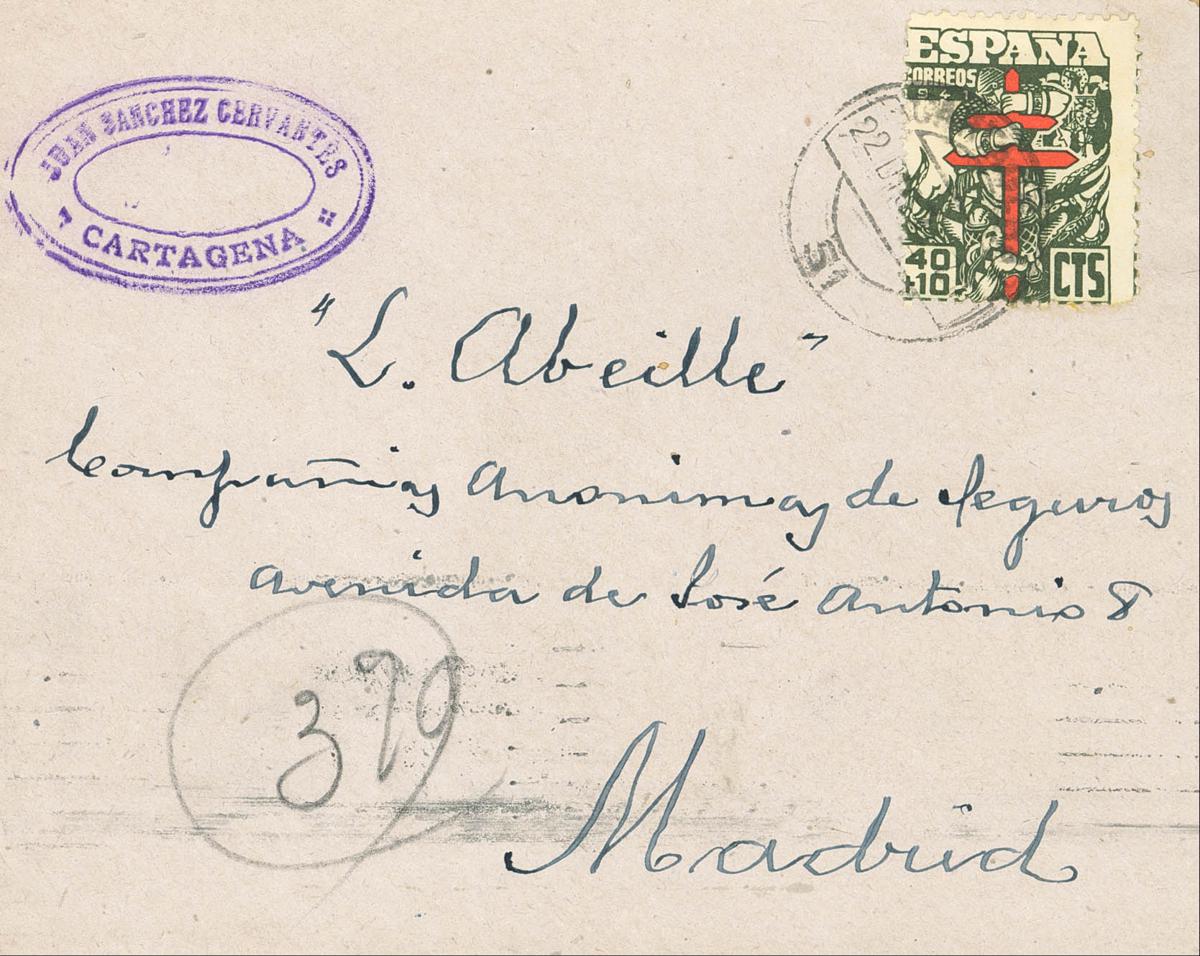 JUAN SANCHEZ CERVANTES
CARTAGENA
ESPAÑA
CORREOS
194
40
+10
CTS
22 DIC
51
"L. Abeille"
Compañias Anonimas de Seguros
Avenida de José Antonio 8
Madrid
390